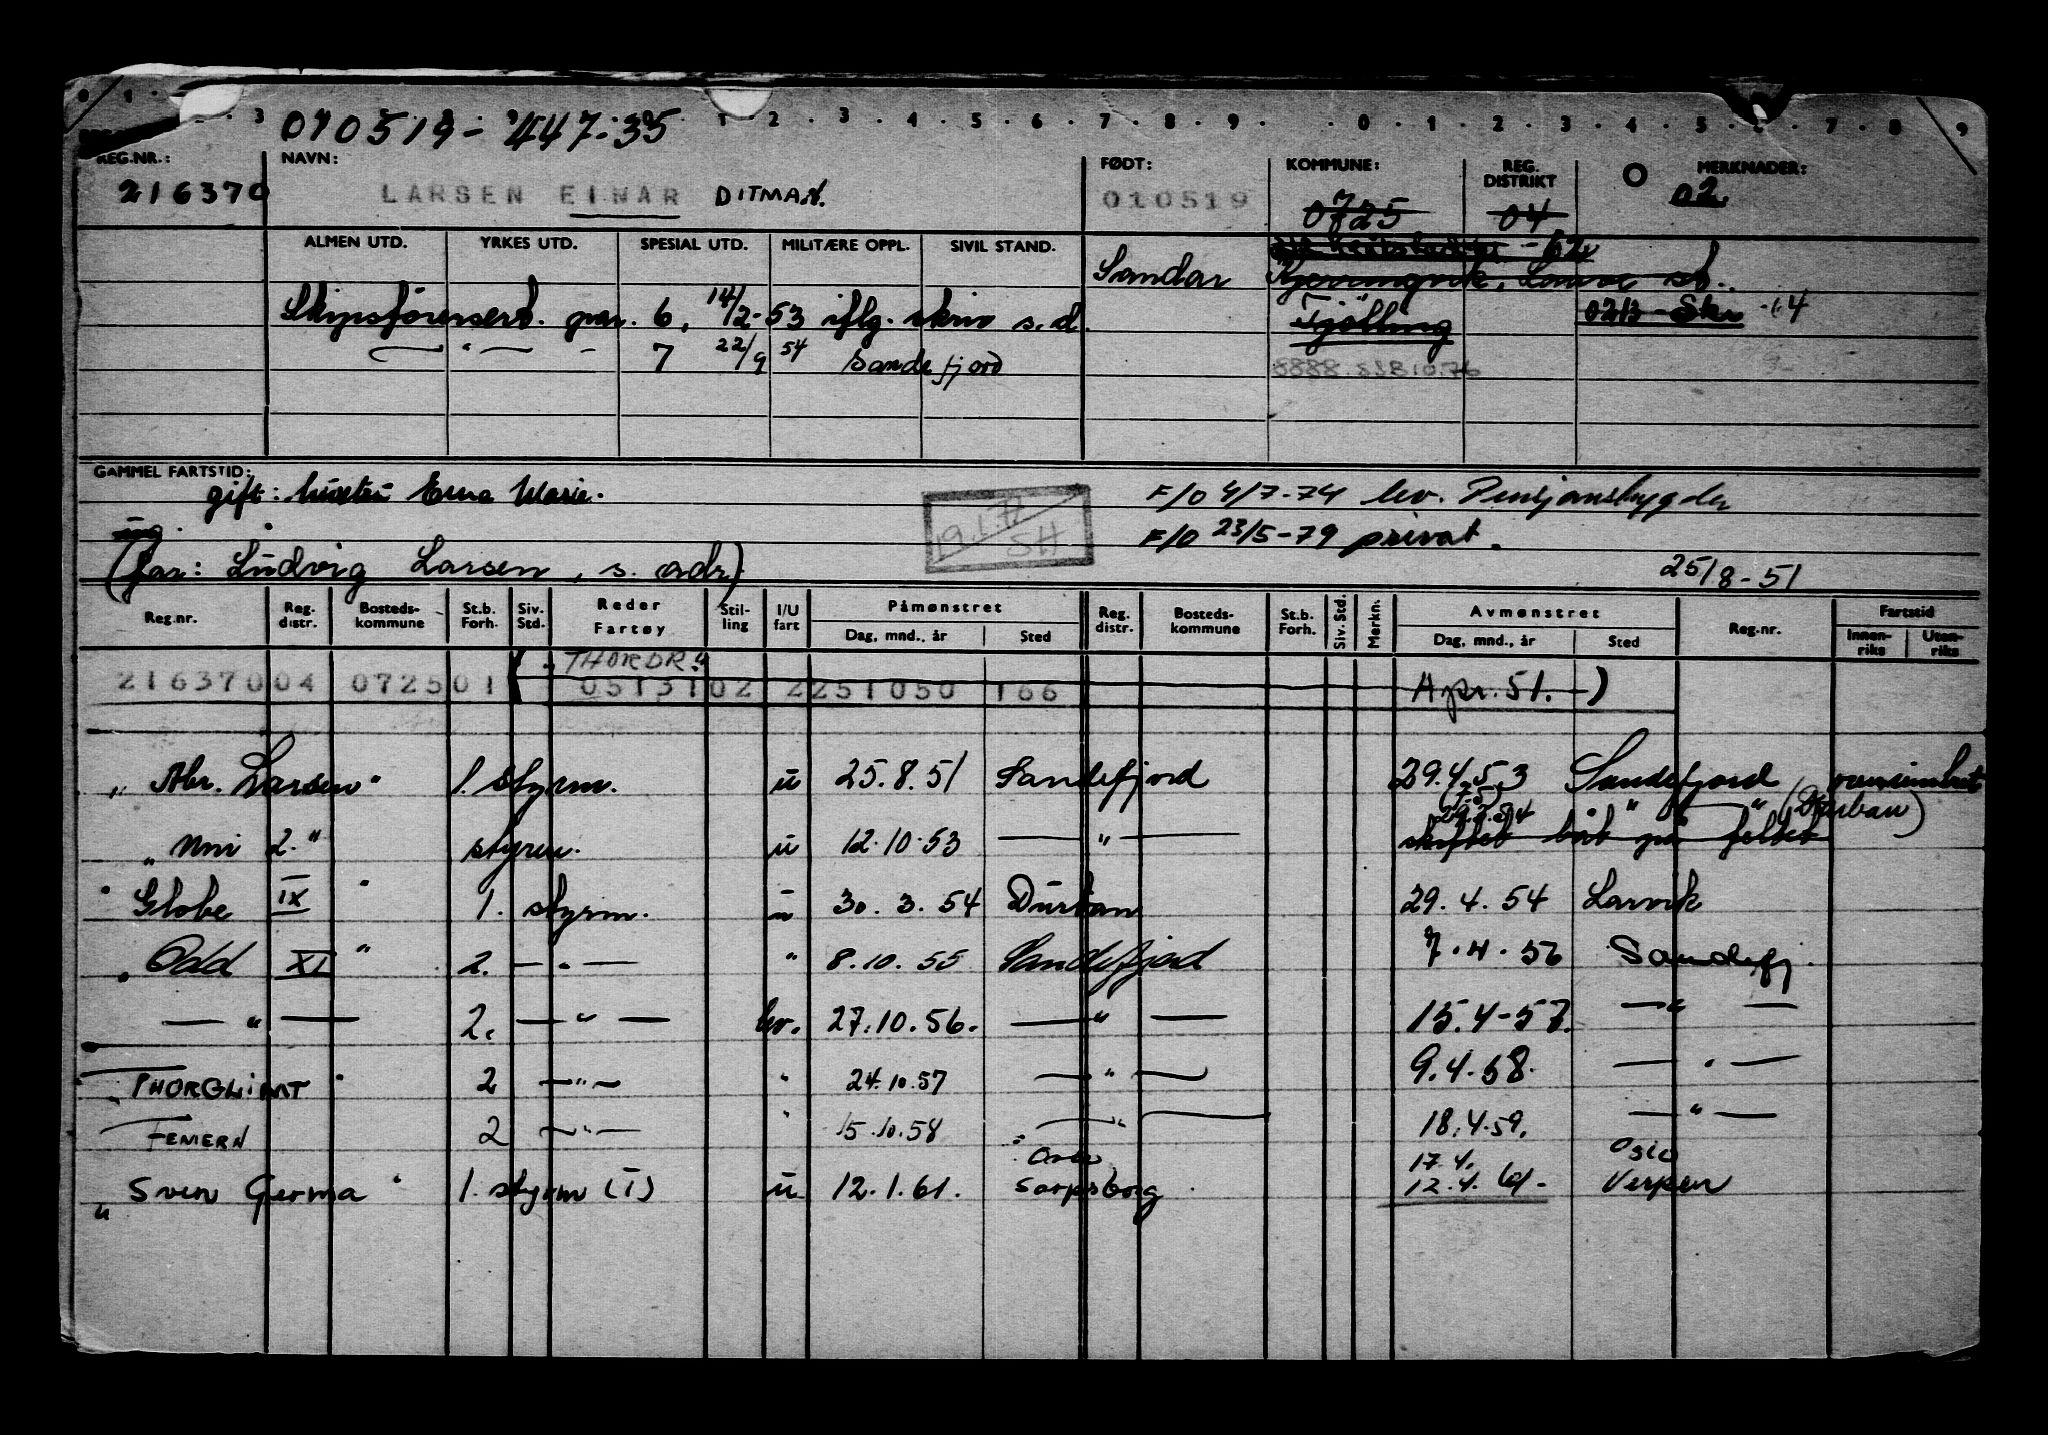 010519-447-35
REG.NR.: NAVN: FØDT: KOMMUNE: REG. DISTRIKT MERKNADER:
216370 LARSEN EINAR DITMAN. 010519 0725 04 02
ALMEN UTD. YRKES UTD. SPESIAL UTD. MILITÆRE OPPL. SIVIL STAND.
Sandar
Skipsförersert. par. 6, 14/2-53 iflg. skriv s.d. Tjölling
— " — - 7 22/9 54 Sandefjord
GAMMEL FARTSTID:
gift: Erna Marie. F/O 4/7-74 lev. Pensjonstrygden
19.1.77 SH
F/O 23/5-79 privat.
(far: Ludvig Larsen, s. adr) 25/8-51
Reg.nr. Reg. distr. Bosteds-kommune St.b. Forh. Siv. Std. Reder Fartøy Stil-ling I/U fart Påmønstret Dag, mnd., år Sted Reg. distr. Bosteds-kommune St.b. Forh. Siv. Std. Merkn. Avmønstret Dag, mnd., år Sted Reg.nr. Fartstid Innen-riks Uten-riks
THORDR."
216370 04 0725 01 0513102 2251050 166 Apr. 51. )
" Abr. Larsen" 1. styrm. u 25.8.51 Sandefjord 29.4.53 Sandefjord
(Durban)
" Uni 2." styrm. u 12.10.53 — " — skiftet båt på feltet
" Globe IX " 1. styrm. u 30.3.54 Durban 29.4.54 Larvik
" Odd XI " 2. — " — " 8.10.55 Sandefjord 7.4.56 Sandefj.
— " — 2. — " — hv. 27.10.56. — " — 15.4-57. — " —
" THORGLIMT " 2 — " — " 24.10.57 — " — 9.4.58. — " —
FEMERN 2 — " — " 15.10.58 — " — 18.4.59. — " —
17.4. Oslo
" Sven Germa " 1. styrm (I) u 12.1.61. Sarpsborg 12.4.61.